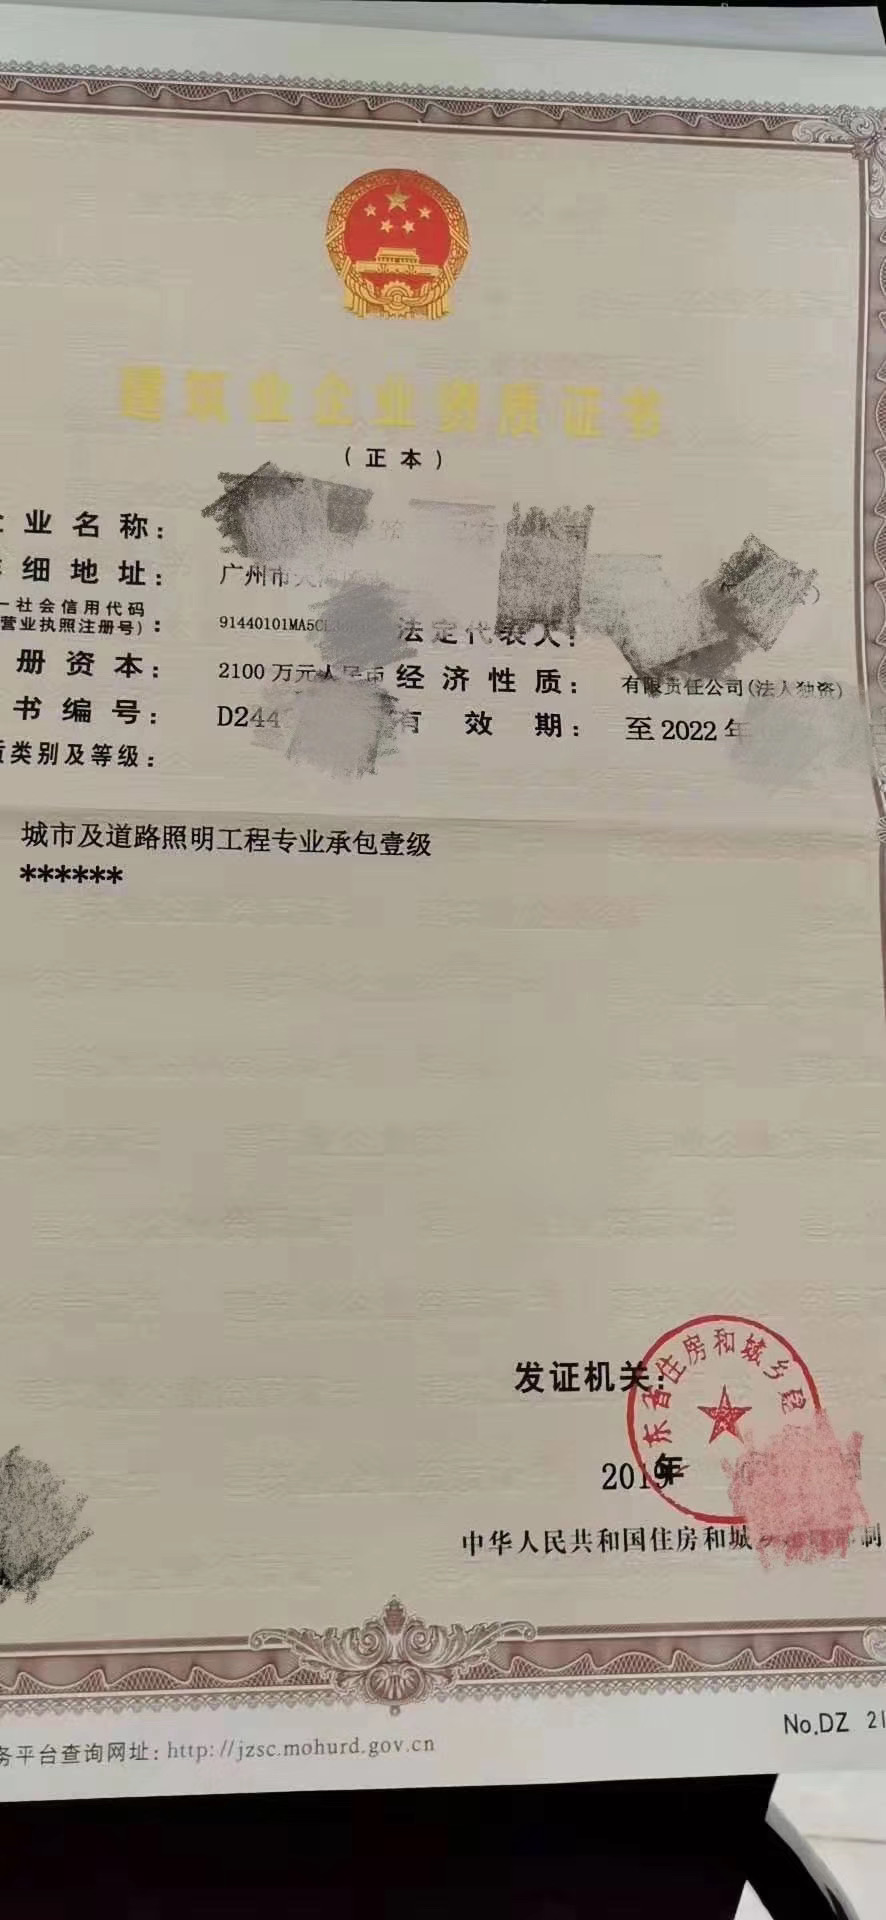 建筑业企业资质证书
(正本)
业名称:
细地址: 广州市
一社会信用代码
营业执照注册号): 91440101MA5C 法定代表人:
册资本: 2100万元人民币 经济性质: 有限责任公司(法人独资)
书编号: D244 有效期: 至2022年
类别及等级:
城市及道路照明工程专业承包壹级
******
发证机关:
东省住房和城乡建
2019年
中华人民共和国住房和城 制
务平台查询网址: http://jzsc.mohurd.gov.cn
No.DZ 21